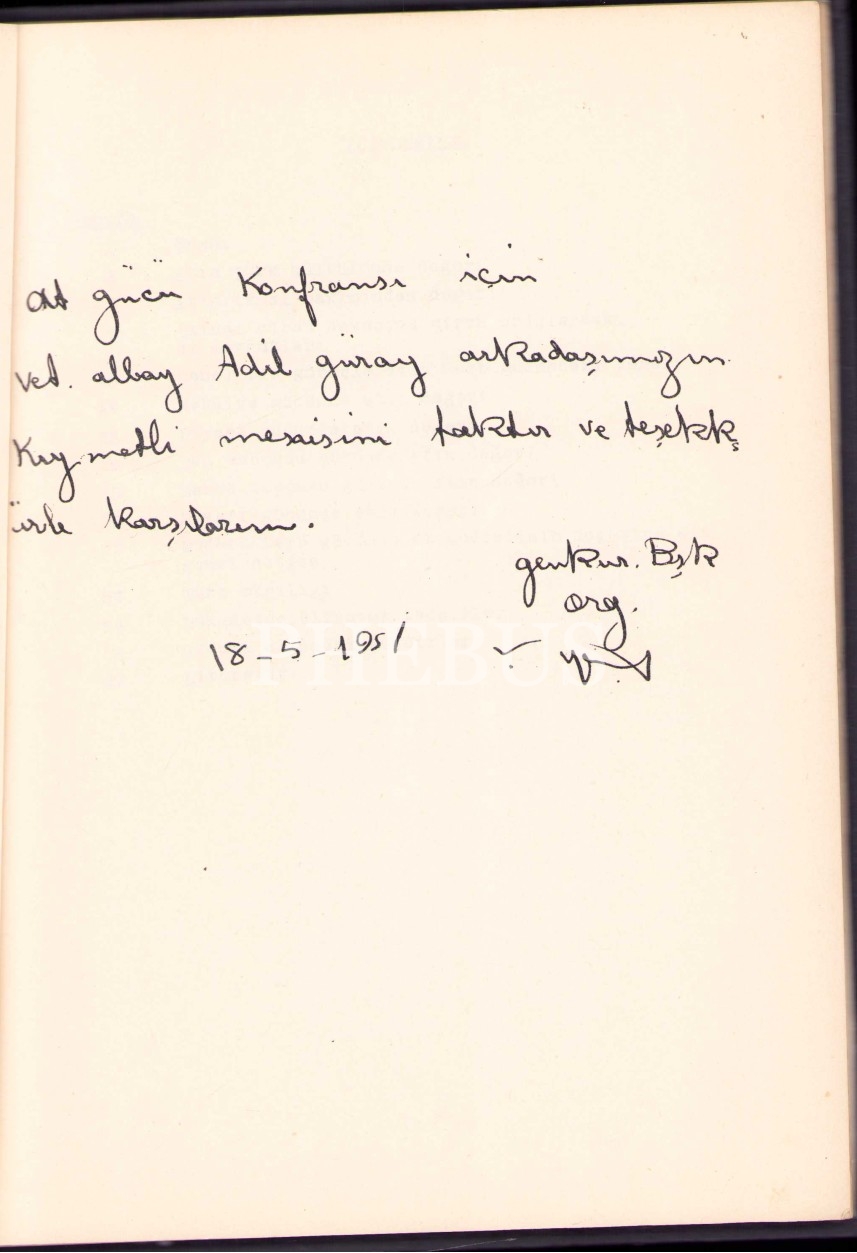 At gücü Konfransı için
Vet. albay Adil güray arkadaşımızın
Kıymetli mesaisini taktir ve teşekk
ürle karşılarım.
genkur. Bşk
org.
18-5-1951
PHEBUS